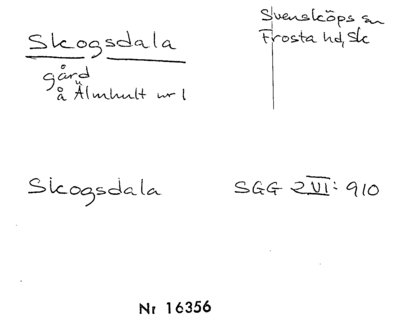 Skogsdala
gård
å Älmhult nr 1
Svensköps sn
Frosta hd, Sk
Skogsdala
SGG 2 VI: 910
Nr 16356